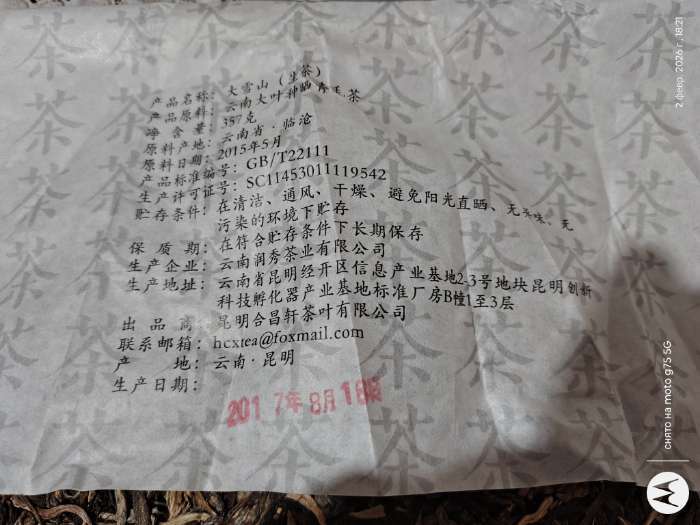 产品名称：大雪山（生茶）
产品原料：云南大叶种晒青毛茶
净含量：357克
原料产地：云南省·临沧
原料日期：2015年5月
产品标准编号：GB/T22111
生产许可证号：SC11453011119542
贮存条件：在清洁、通风、干燥、避免阳光直晒、无异味、无
污染的环境下贮存
保质期：在符合贮存条件下长期保存
生产企业：云南润秀茶业有限公司
生产地址：云南省昆明经开区信息产业基地2-3号地块昆明创新
科技孵化器产业基地标准厂房B幢1至3层
出品商：昆明合昌轩茶叶有限公司
联系邮箱：hcxtea@foxmail.com
产地：云南·昆明
生产日期：
2017年8月18日
2 февр. 2026 г., 18:21
снято на moto g75 5G